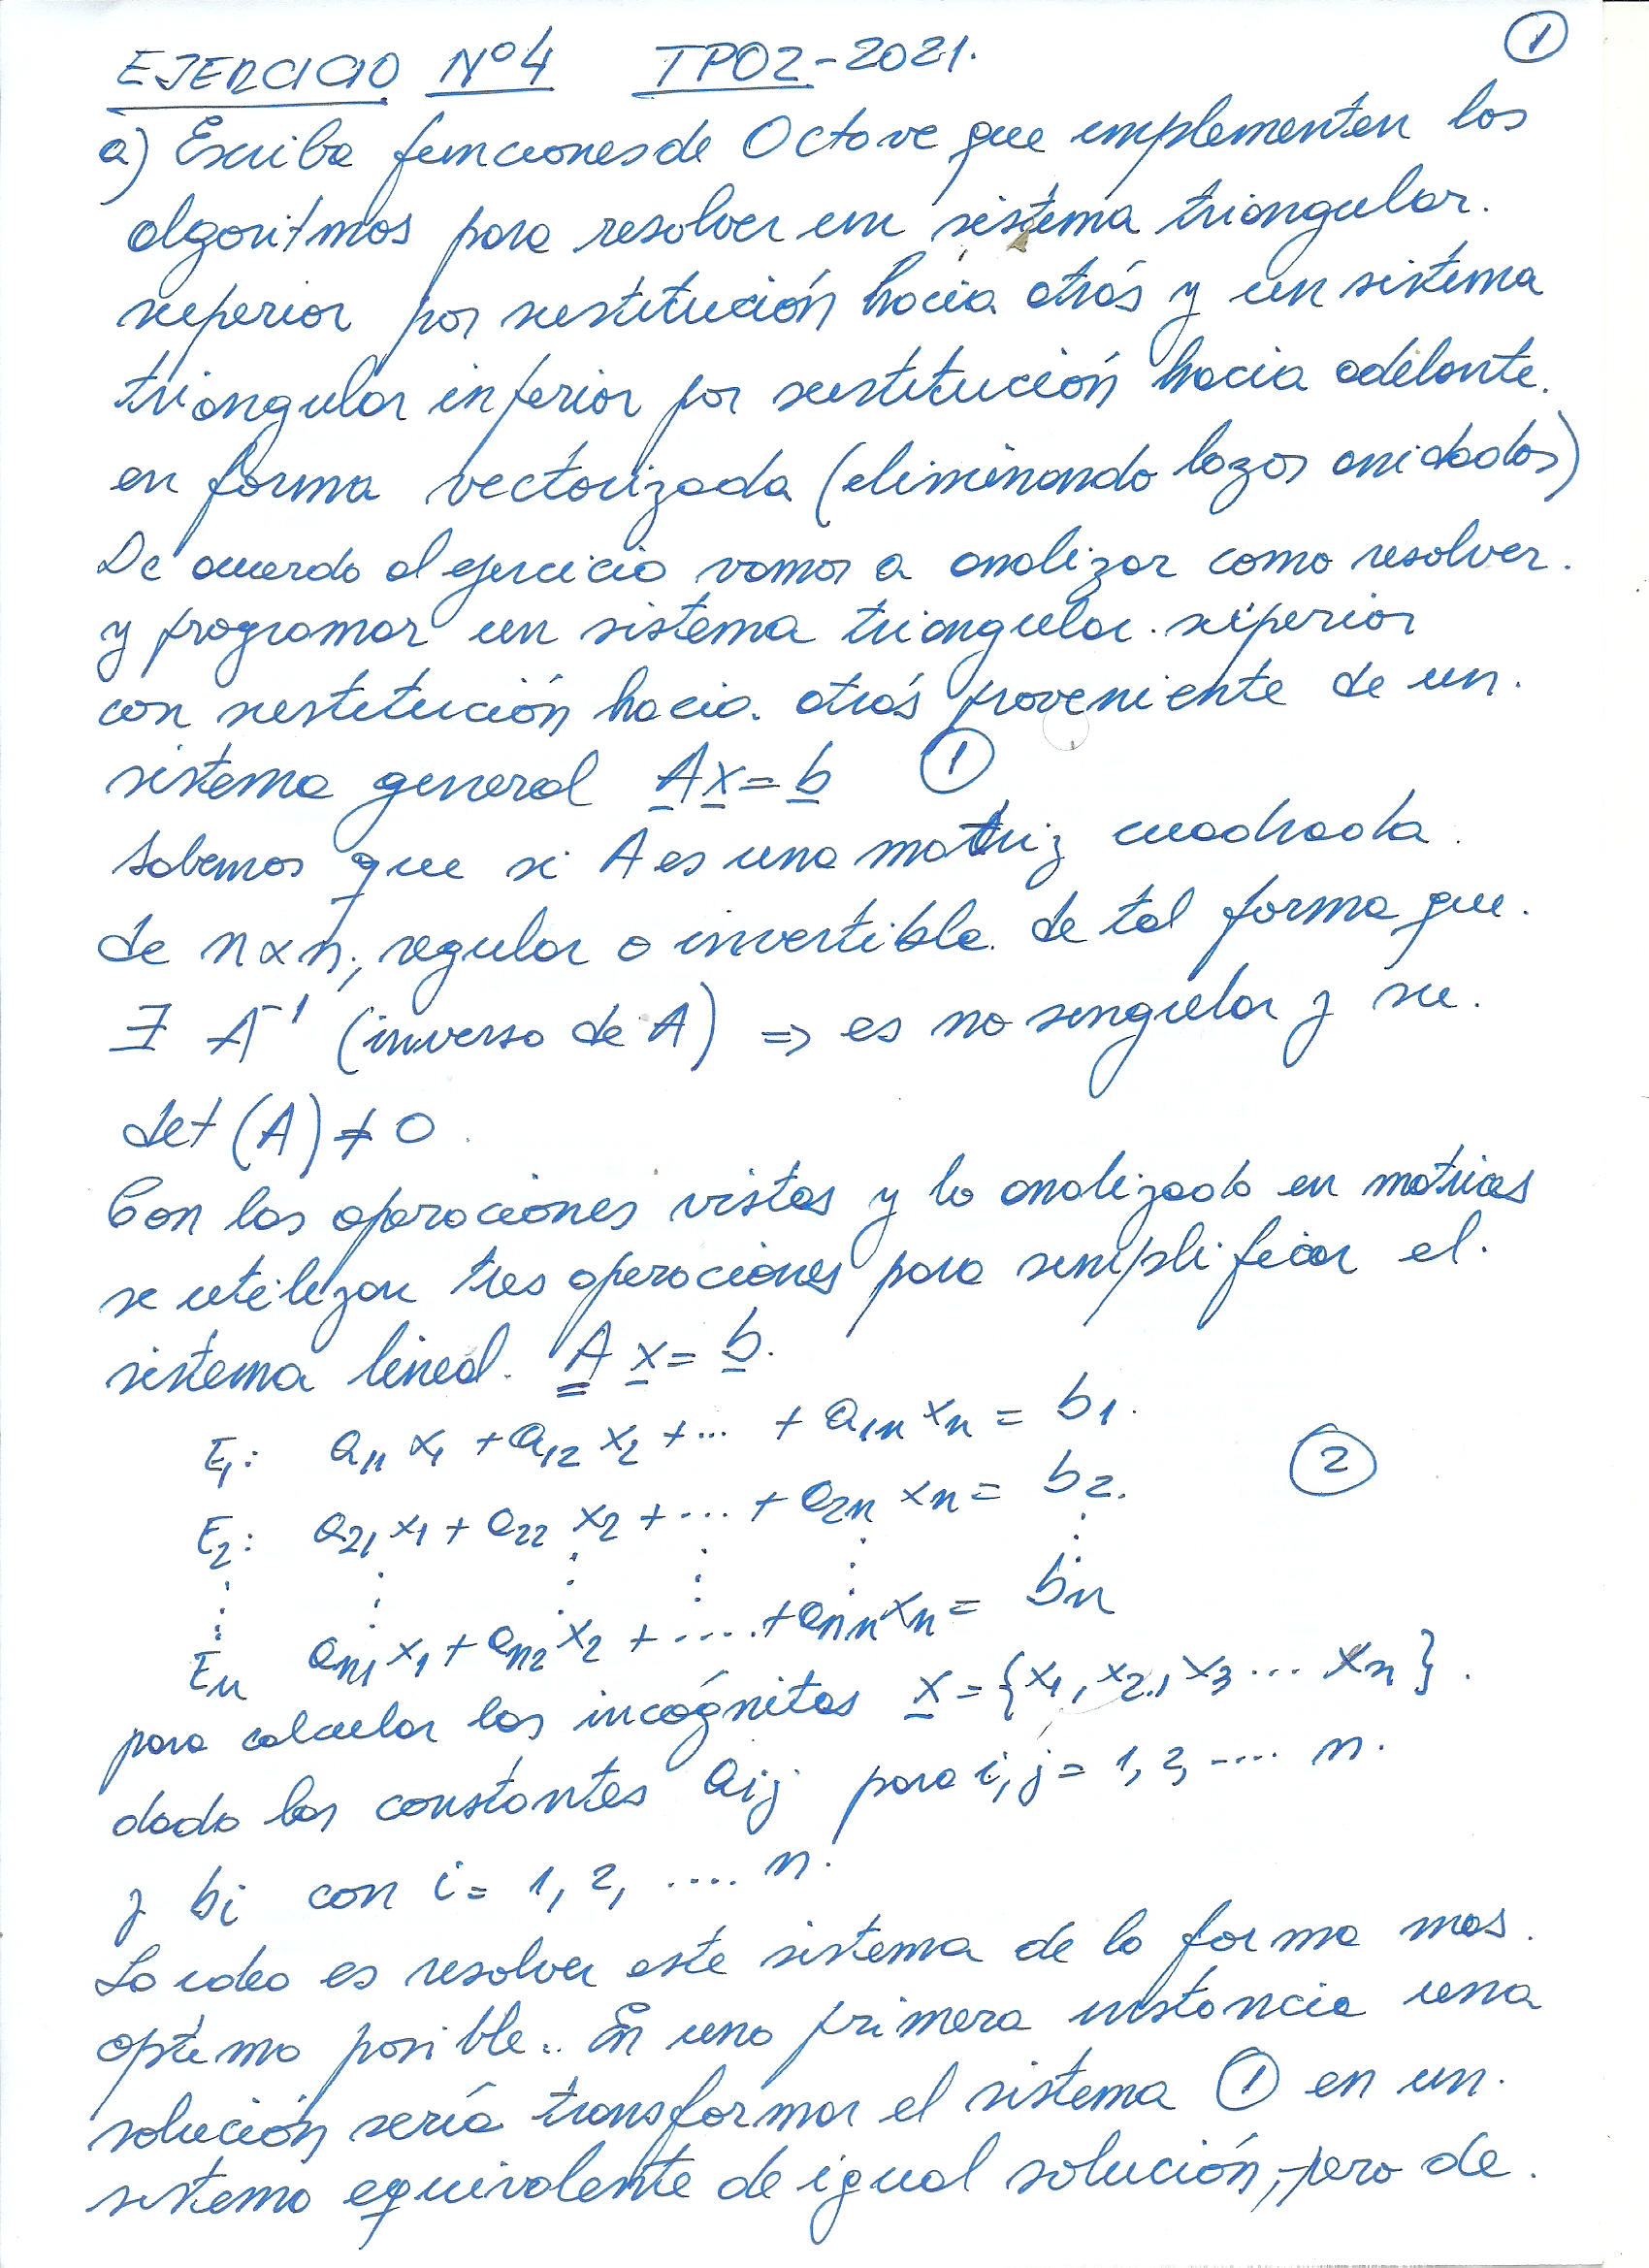 ①
EJERCICIO Nº4 TP02-2021.
a) Escriba funciones de Octave que implementen los
algoritmos para resolver un sistema triangular.
superior por sustitución hacia atrás y un sistema
triangular inferior por sustitución hacia adelante.
en forma vectorizada (eliminando lazos anidados)
De acuerdo al ejercicio vamos a analizar como resolver.
y programar un sistema triangular. superior
con sustitución hacia. atrás proveniente de un.
sistema general A x = b ①
Sabemos que si A es una matriz cuadrada.
de n x n, regular o invertible. de tal forma que.
∃ A⁻¹ (inversa de A) => es no singular y su.
det (A) ≠ 0.
Con las operaciones vistas y lo analizado en matrices
se utilizan tres operaciones para simplificar el.
sistema lineal. A x = b.
E₁: a₁₁ x₁ + a₁₂ x₂ + ... + a₁ₙ xₙ = b₁.
②
E₂: a₂₁ x₁ + a₂₂ x₂ + ... + a₂ₙ xₙ = b₂.
⋮ ⋮ ⋮ ⋮ ⋮ ⋮
Eₙ aₙ₁ x₁ + aₙ₂ x₂ + ..... + aₙₙ xₙ = bₙ
para calcular las incógnitas x = {x₁, x₂, x₃ ... xₙ}.
dado las constantes aij para i, j = 1, 2, .... n.
y bi con i = 1, 2, .... n.
La idea es resolver este sistema de la forma mas.
optima posible.. En una primera instancia una
solución sería transformar el sistema ① en un.
sistema equivalente de igual solución, pero de.